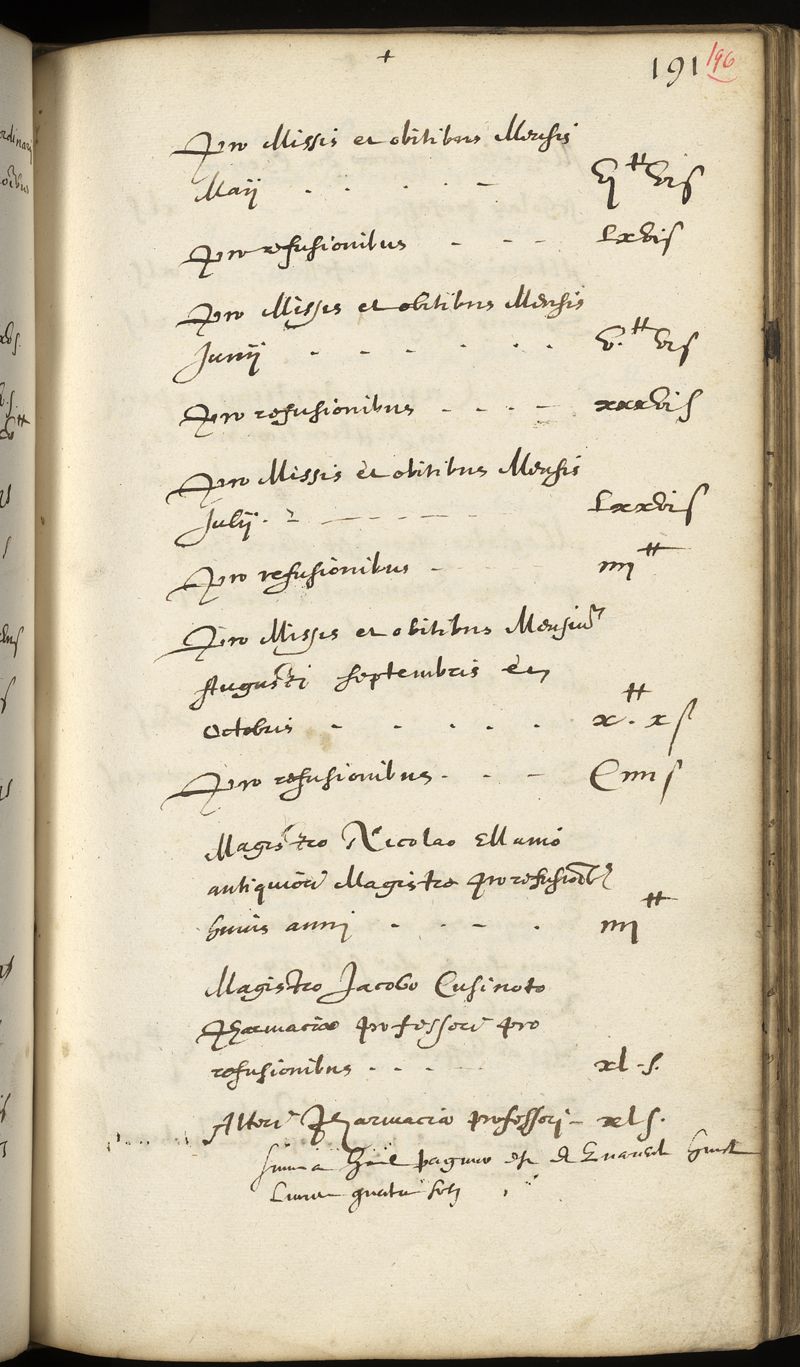 +
191 196
Pro Missis et obitibus Mensis
Maij . . . . - vj ₶ vi s
Pro refusionibus - - - lxvi s
Pro Missis et obitibus Mensis
Junij - - - - . . v. ₶ vi s
Pro refusionibus - - . - xxxvi s
Pro Missis et obitibus Mensis
Julij. - - - - - lxxvi s
Pro refusionibus - - - iiij ₶
Pro Missis et obitibus Mensiū
Augusti septembris et
Octobris - . . . . x ₶. x s
Pro refusionibus. - - Ciiii s
Magistro Nicolao Ellanió
antiquiori Magistro pro refusionib
huius anni . - . - . iiij ₶
Magistro Jacobo Cusinoto
Pharmaciæ professori pro
refusionibus . . . xl - s.
Alteri Pharmaciæ professori - xl s.
pagine est